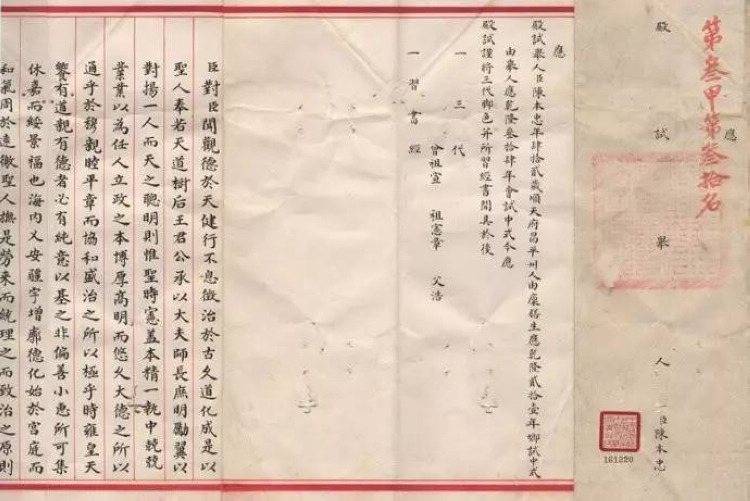 第叁甲第叁拾名
應
殿試舉人臣陳本忠
161320
應
殿試舉人臣陳本忠年肆拾貳歲順天府昌平州人由廩膳生應乾隆貳拾壹年鄉試中式
由舉人應乾隆叁拾肆年會試中式今應
殿試謹將三代脚色并所習經書開具於後
一三代
曾祖宣 祖憲章 父浩
一習書經
臣對臣聞觀德於天健行不息徵治於古久道化成是以
聖人奉若天道樹后王君公承以大夫師長庶明勵翼以
對揚一人而天之聰明則惟聖時憲蓋本精一執中兢兢
業業以為任人立政之本博厚高明而悠久大德之所以
通乎於穆親睦平章而協和盛治之所以極乎時雍皇天
饗有道親有德者必有純意以基之非偏善小惠所可集
休嘉而綏景福也海内乂安疆宇增廓德化始於宮庭而
和氣周於遠徼聖人撫是勞來而統理之而致治之原則